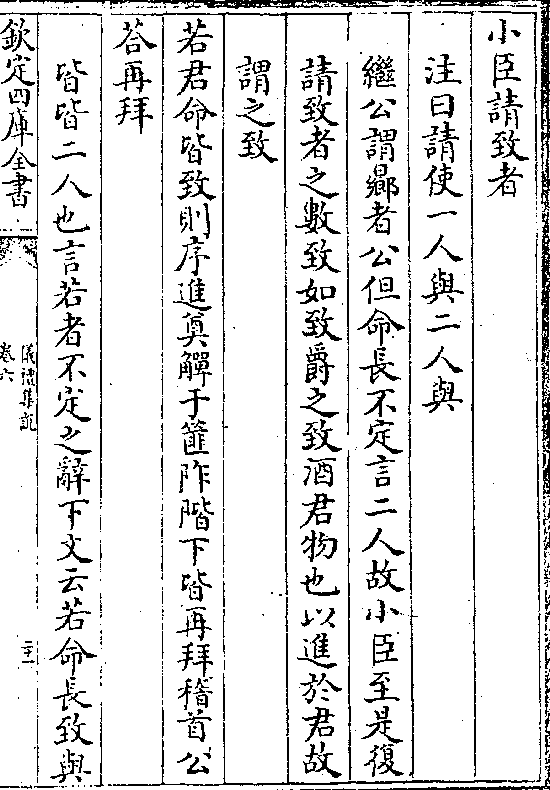 小臣請致者
注曰請使一人與二人與
繼公謂曏者公但命長不定言二人故小臣至是復
請致者之數致如致爵之致酒君物也以進於君故
謂之致
若君命皆致則序進奠觶于篚阼階下皆再拜稽首公
荅再拜
皆皆二人也言若者不定之辭下文云若命長致與
欽定四庫全書
儀禮集說
卷六